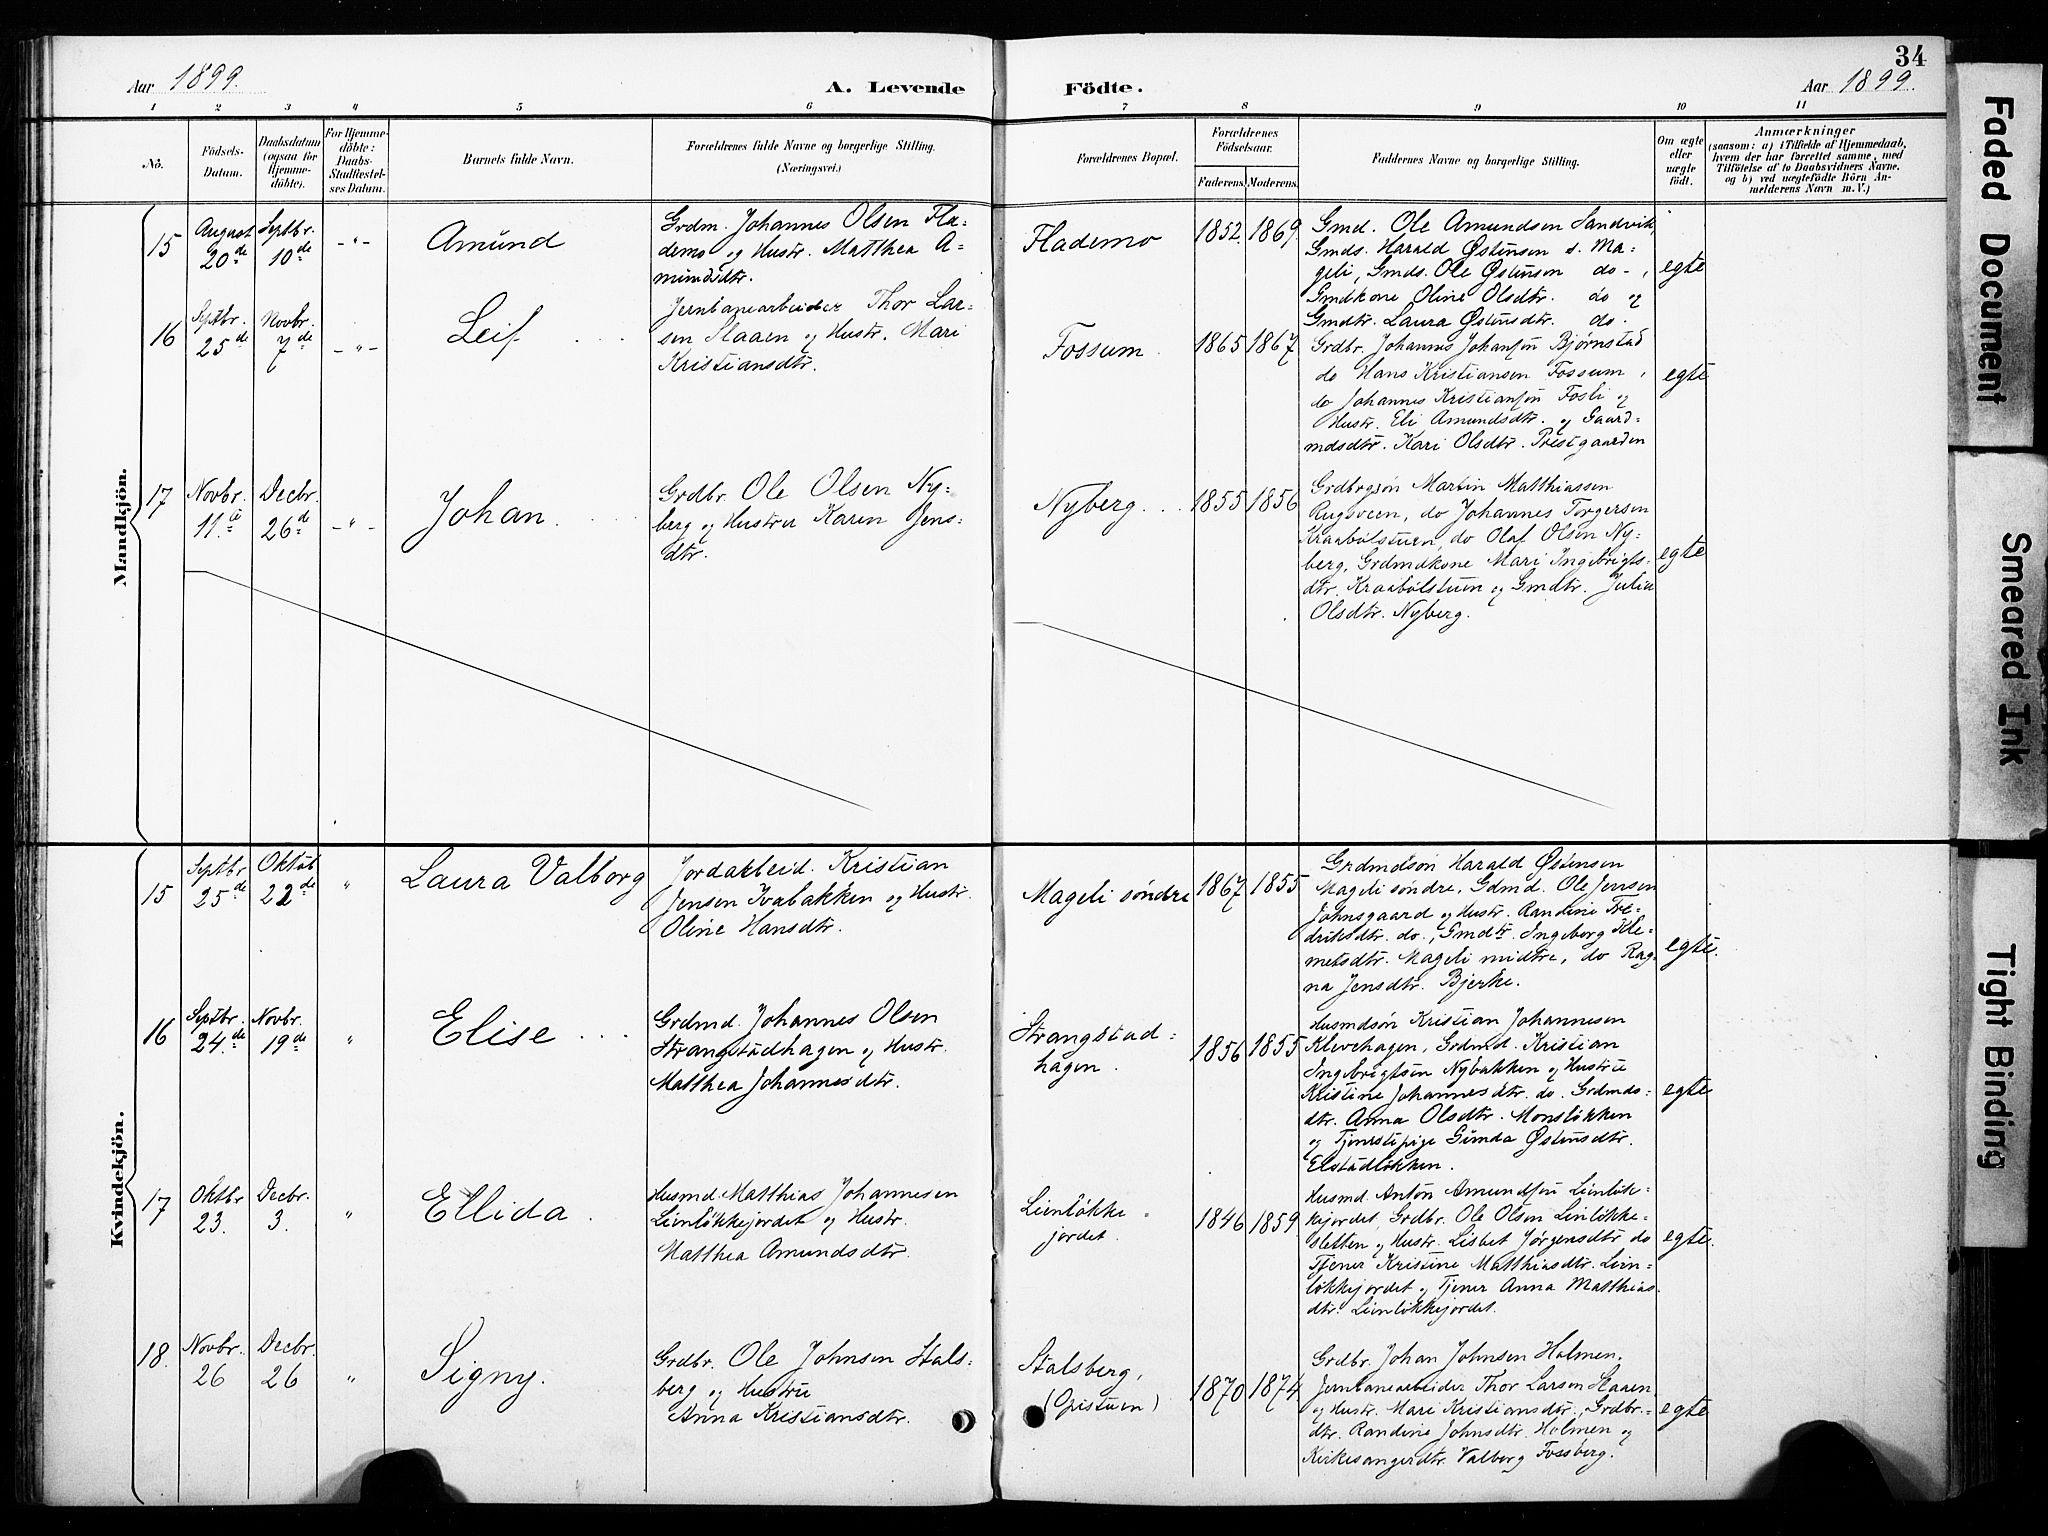 34
Aar 1899.
A. Levende
Födte.
Aar 1899.
1 2 3 4 5 6 7 8 9 10 11
No.
Födsels-
Datum.
Daabsdatum
(ogsaa for
Hjemme-
döbte).
For Hjemme-
döbte:
Daabs-
Stadfæstel-
ses Datum.
Barnets fulde Navn.
Forældrenes fulde Navne og borgerlige Stilling.
(Næringsvei.)
Forældrenes Bopæl.
Forældrenes
Födselsaar.
Faderens. Moderens.
Faddernes Navne og borgerlige Stilling.
Om ægte
eller
uægte
født.
Anmærkninger
(saasom: a) i Tilfælde af Hjemmedaab,
hvem der har forrettet samme, med
Tilföielse af to Daabsvidners Navne.
og b) ved uægtefödte Börn An-
melderens Navn m. V.)
Mandkjön.
15
August
20de
Septbr.
10de
-"-
Amund
Grdm. Johannes Olsen Fla-
demo og Hustr. Matthea A-
mundsdtr.
Flademo
1852. 1869
Gmd. Ole Amundsen Sandvik,
Gmds. Harald Østensen s. Ma-
geli, Gmds. Ole Østensen do-,
Gmdkone Oline Olsdtr. do og
Gmdtr. Laura Østensdtr. do.
egte
16
Septbr.
25de
Novbr.
7de
-"-
Leif
Jernbanearbeider Thor Lar-
sen Slaaen og Hustr. Mari
Kristiansdtr.
Fossum
1865 1867
Grdbr. Johannes Johansen Bjørnstad
do Hans Kristiansen Fossum,
do Johannes Kristiansen Fosli og
Hustr. Eli Amundsdtr. og Gaard-
mdsdtr. Kari Olsdtr. Prestgaarden
egte
17
Novbr.
11te
Decbr.
26d
-"-
Johan
Grdbr. Ole Olsen Ny-
berg og Hustru Karen Jens-
dtr.
Nyberg
1855 1856
Grdbrgsøn Martin Matthiassen
Rugsveen, do Johannes Torgersen
Kraabølstuen, do Olaf Olsen Ny-
berg, Grdmdkone Mari Ingebrigts-
dtr. Kraabølstuen og Gmdtr. Julia
Olsdtr. Nyberg.
egte
Kvindekjön.
15
Septbr
25de
Oktob
22de
"
Laura Valborg
Jordarbeid. Kristian
Jensen Ivabakken og Hustr.
Oline Hansdtr.
Mageli søndre
1867 1855
Grdmdsøn Harald Østensen
Mageli søndre, Gdmd. Ole Jensen
Johnsgaard og Hustr. Randine Fre-
driksdtr. do., Gmdtr. Ingeborg Kle-
metsdtr. Mageli midtre, do Rag-
na Jensdtr. Bjerke.
egte.
16
Septbr.
24de
Novbr.
19de
"
Elise
Grdmd. Johannes Olsen
Strangstadhagen og Hustr.
Matthea Johannesdtr.
Strangstad-
hagen.
1856 1855
Husmdsøn Kristian Johannesen
Klevehagen, Grdmd. Kristian
Ingebrigtsen Nybakken og Hustru
Kristine Johannesdtr. do. Grdmds-
dtr. Anna Olsdtr. Monsløkken
og Tjenestepige Gunda Østensdtr.
Elstadløkken.
egte
17
Oktbr
23.
Decbr.
3.
"
Ellida
Husmd. Matthias Johannesen
Lienløkkejordet og Hustr.
Matthea Amundsdtr.
Lienløkke-
jordet.
1846 1859
Husmd. Anton Amundsen Lienløk-
kejordet, Grdbr. Ole Olsen Linløkke-
sletten og Hustr. Lisbet Jørgensdtr do
Tjener Kristine Matthiasdtr. Lien-
løkkejordet og Tjener Anna Matthias-
dtr. Lienløkkejordet.
egte.
18.
Novbr.
26
Decbr.
26
"
Signy.
Grdbr. Ole Johnsen Stals-
berg og Hustru
Anna Kristiansdtr.
Stalsberg,
(Opistuen)
1870 1874
Grdbr. Johan Johnsen Holmen.
Jernbanearbeider Thor Larsen Slaaen
og Hustr. Mari Kristiansdtr., Grdbr.-
dtr. Randine Johnsdtr. Holmen og
Kirkesangerdtr. Valborg Fossberg.
egte
Faded Document
Smeared Ink
Tight Binding